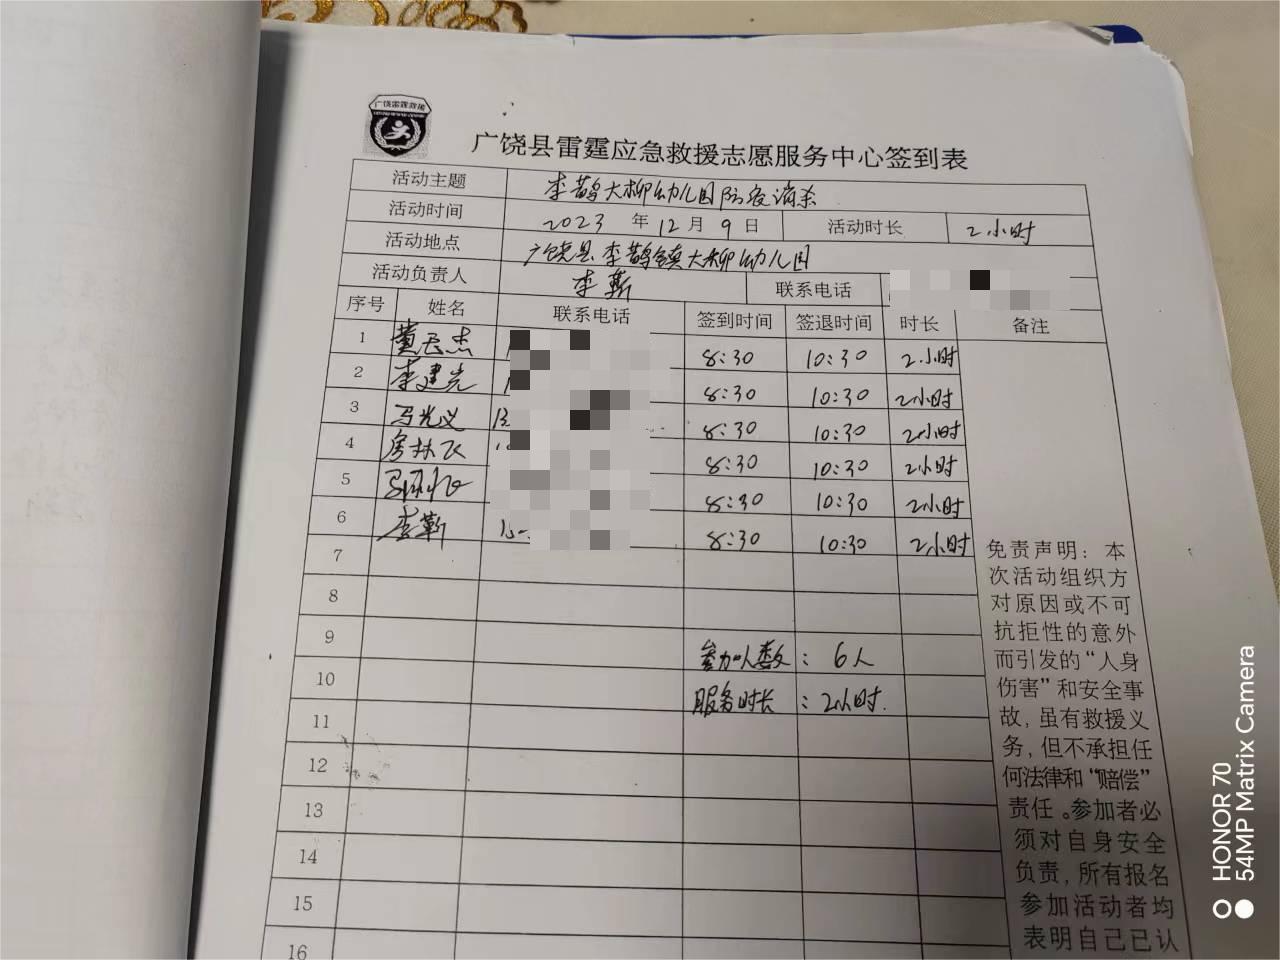 广饶雷霆救援
广饶县雷霆应急救援志愿服务中心签到表
活动主题 李鹊大柳幼儿园防疫消杀
活动时间 2023 年 12 月 9 日 活动时长 2小时
活动地点 广饶县李鹊镇大柳幼儿园
活动负责人 李靳 联系电话
序号 姓名 联系电话 签到时间 签退时间 时长 备注
1 8:30 10:30 2小时
2 李建光 8:30 10:30 2小时
3 马光义 8:30 10:30 2小时
4 房林飞 8:30 10:30 2小时
5 8:30 10:30 2小时
6 李靳 8:30 10:30 2小时
7
8
9 参加人数：6人
10 服务时长：2小时.
11
12
13
14
15
16
免责声明：本
次活动组织方
对原因或不可
抗拒性的意外
而引发的“人身
伤害”和安全事
故，虽有救援义
务，但不承担任
何法律和“赔偿”
责任。参加者必
须对自身安全
负责，所有报名
参加活动者均
表明自己已认
HONOR 70
54MP Matrix Camera